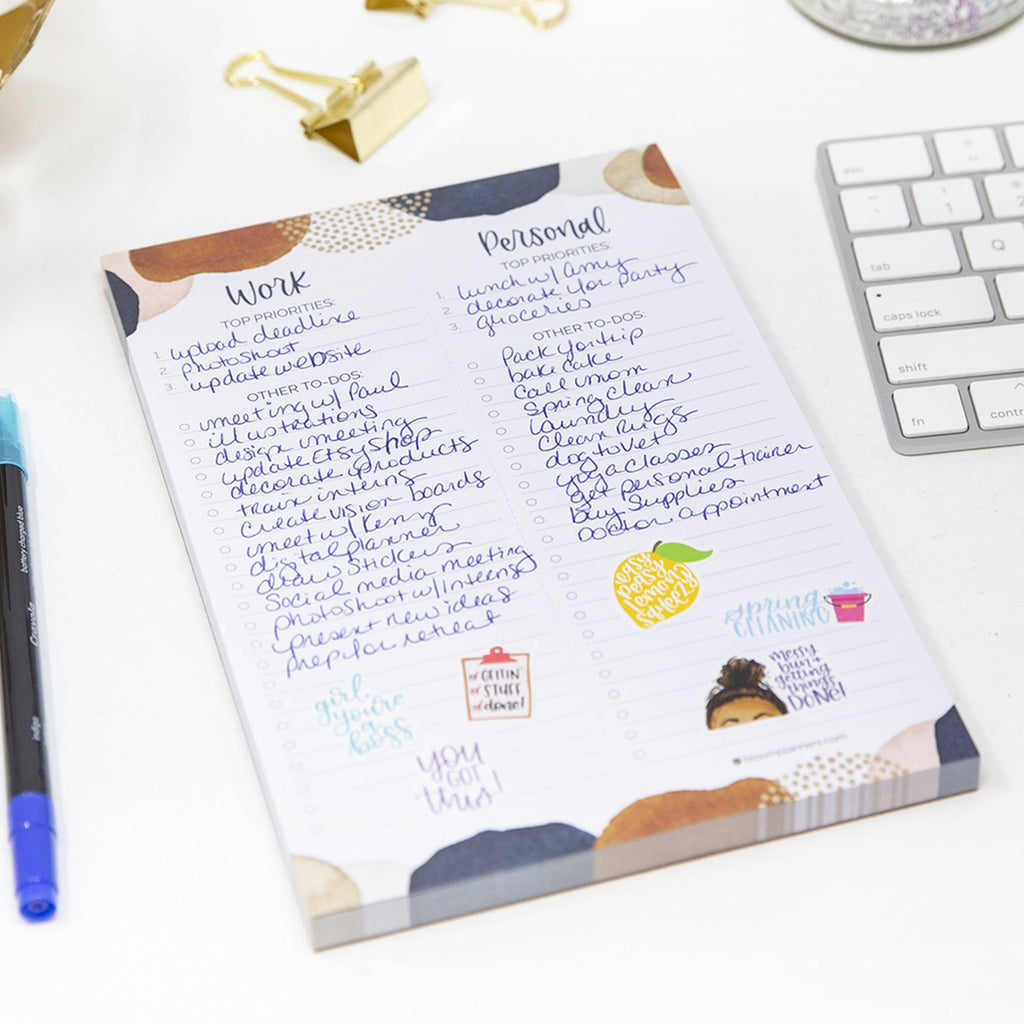 Work
TOP PRIORITIES:
1. upload deadline
2. photoshoot
3. update website
OTHER TO-DOS:
meeting w/ Paul
illustrations
design meeting
update Etsy shop
decorate products
train interns
create vision boards
meet w/ Kenny
digital planner
draw stickers
Social media meeting
photoshoot w/ Interns
present new ideas
prep for retreat
girl,
you're
a
boss
GETTIN'
STUFF
done!
YOU
GOT
this!
Personal
TOP PRIORITIES:
1. lunch w/ Amy
2. decorate for party
3. groceries
OTHER TO-DOS:
Pack for trip
bake cake
Call mom
Spring clean
laundry
Clean rugs
dog to vet
yoga classes
get personal trainer
buy supplies
Doctor appointment
easy
peasy
lemon
squeezy
spring
CLEANING
messy
bun +
getting
things
DONE!
bloomplanners.com
esc
~
!
1
2
tab
Q
caps lock
shift
fn
contr
battery charged blue
Crayola
indigo